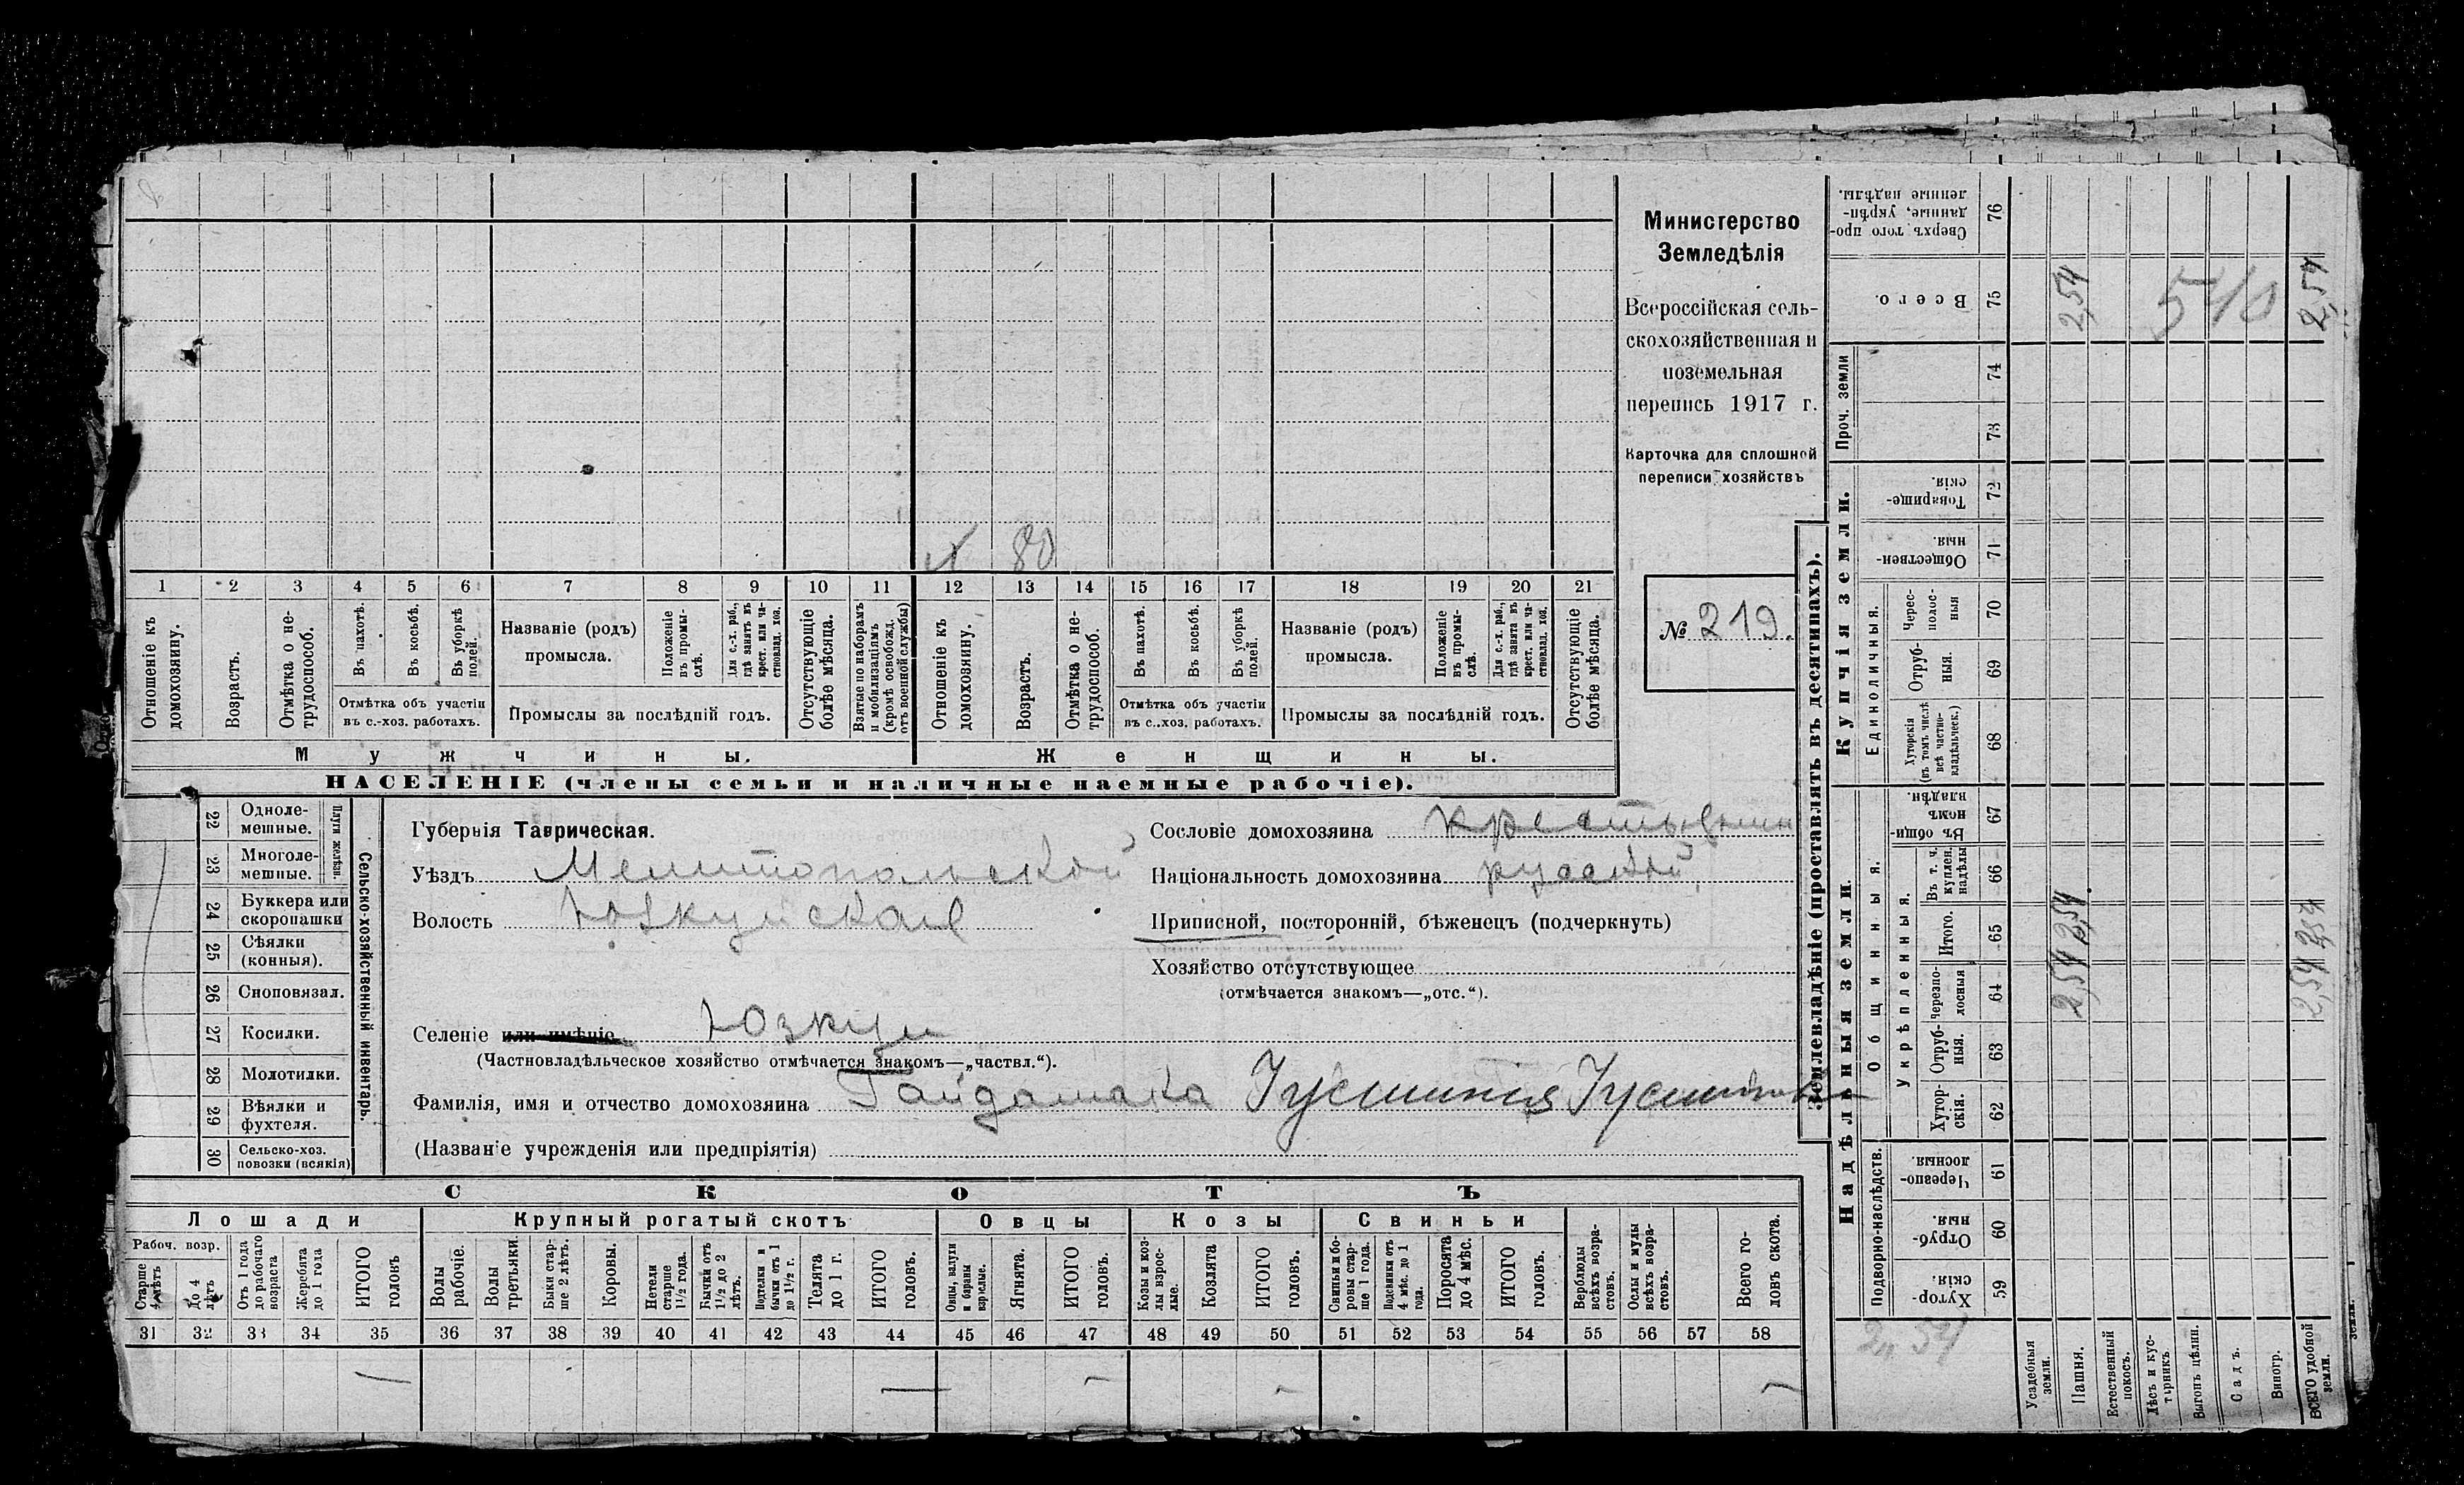 Министерство
Земледѣлія
Всероссійская сель-
скохозяйственная и
поземельная
перепись 1917 г.
Карточка для сплошной
переписи хозяйствъ
№ 219.
х 80
1 2 3 4 5 6 7 8 9 10 11 12 13 14 15 16 17 18 19 20 21
Отношеніе къ домохозяину.
Возрастъ.
Отмѣтка о не-трудоспособ.
Въ пахотѣ.
Въ косьбѣ.
Въ уборкѣ полей.
Отмѣтка объ участіи въ с.-хоз. работахъ.
Названіе (родъ) промысла.
Положеніе въ промы-слѣ.
Для с.-х. раб., гдѣ занятъ въ крест. или ча-стновлад. хоз.
Промыслы за послѣдній годъ.
Отсутствующіе болѣе мѣсяца.
Взятые по наборамъ и мобилизаціямъ (кромѣ освобожд. отъ военной службы)
Отношеніе къ домохозяину.
Возрастъ.
Отмѣтка о не-трудоспособ.
Въ пахотѣ.
Въ косьбѣ.
Въ уборкѣ полей.
Отмѣтка объ участіи въ с.-хоз. работахъ.
Названіе (родъ) промысла.
Положеніе въ промы-слѣ.
Для с.-х. раб., гдѣ занята въ крест. или ча-стновлад. хоз.
Промыслы за послѣдній годъ.
Отсутствующіе болѣе мѣсяца.
Мужчины. Женщины.
НАСЕЛЕНІЕ (члены семьи и наличные наемные рабочіе).
22 Однолемешные.
23 Многолемешные.
Плуги желѣзн.
24 Буккера или скоропашки
25 Сѣялки (конныя).
26 Сноповязал.
27 Косилки.
28 Молотилки.
29 Вѣялки и фухтеля.
30 Сельско-хоз. повозки (всякія)
Сельско-хозяйственный инвентарь.
Губернія Таврическая.
Уѣздъ Мелитопольской
Волость Юзкуйская
Селеніе или имѣніе Юзкуи
(Частновладѣльческое хозяйство отмѣчается знакомъ—„частвл.“).
Фамилія, имя и отчество домохозяина Гайдамака
(Названіе учрежденія или предпріятія)
Сословіе домохозяина крестьянин
Національность домохозяина русской
Приписной, посторонній, бѣженецъ (подчеркнуть)
Хозяйство отсутствующее
(отмѣчается знакомъ—„отс.“).
СКОТЪ
Лошади Крупный рогатый скотъ Овцы Козы Свиньи
Рабоч. возр.
Старше 4 лѣтъ
До 4 лѣтъ
Отъ 1 года до рабочаго возраста
Жеребята до 1 года
ИТОГО головъ
Волы рабочіе.
Волы третьяки.
Быки стар-ше 2 лѣтъ.
Коровы.
Нетели старше 1½ года.
Бычки отъ 1½ до 2 лѣтъ.
Подтелки и бычки отъ 1 до 1½ г.
Телята до 1 г.
ИТОГО головъ.
Овцы, валухи и бараны взрослые.
Ягнята.
ИТОГО головъ.
Козы и коз-лы взрос-лые.
Козлята
ИТОГО головъ.
Свиньи и бо-ровы стар-ше 1 года.
Подсвинки отъ 4 мѣс. до 1 года.
Поросята до 4 мѣс.
ИТОГО головъ.
Верблюды всѣхъ возра-стовъ.
Ослы и мулы всѣхъ возра-стовъ.
Всего го-ловъ скота.
31 32 33 34 35 36 37 38 39 40 41 42 43 44 45 46 47 48 49 50 51 52 53 54 55 56 57 58
— — — — —
Землевладѣніе (проставлять въ десятинахъ).
Купчія земли.
Надѣльныя земли.
Сверхъ того про-данные, укрѣп-ленные надѣлы. 76
Всего. 75 2,54 540 2,54
Проч. земли 74 73
Товарище-скія. 72
Обществен-ныя. 71
Единоличныя.
Черес-полос-ныя 70
Отруб-ныя. 69
Хуторскія (въ томъ числѣ всѣ частно-владѣльческ.) 68
Общинныя.
Въ общин-номъ владѣн. 67
Укрѣпленныя.
Въ т. ч. куплен. надѣлы 66
Итого. 65 2,54
черезпо-лосныя 64 2,54 2,54
Отруб-ныя. 63
Хутор-скія. 62
Подворно-наслѣдств.
Черезпо-лосныя. 61
Отруб-ныя. 60
Хутор-скія. 59
2,54
Усадебныя земли.
Пашня.
Естественный покосъ.
Лѣсъ и кус-тарникъ
Выгонъ цѣлин.
Садъ.
Виногр.
ВСЕГО удобной земли.